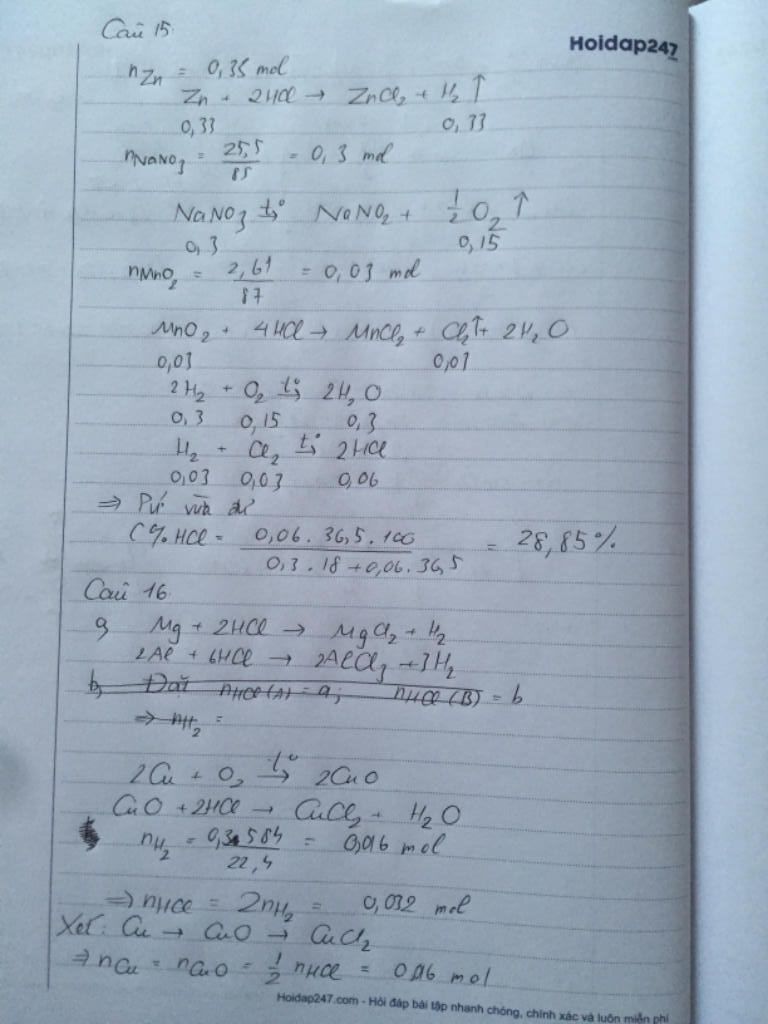 Câu 15.
Hoidap247
nZn = 0,35 mol
Zn + 2HCl → ZnCl2 + H2 ↑
0,33 0,33
nNaNO3 = 25,5/85 = 0,3 mol
NaNO3 t°→ NaNO2 + 1/2 O2 ↑
0,3 0,15
nMnO2 = 2,61/87 = 0,03 mol
MnO2 + 4HCl → MnCl2 + Cl2↑ + 2H2O
0,03 0,03
2H2 + O2 t°→ 2H2O
0,3 0,15 0,3
H2 + Cl2 t°→ 2HCl
0,03 0,03 0,06
⇒ Pứ vừa đủ
C%HCl = 0,06 . 36,5 . 100 / 0,3 . 18 + 0,06 . 36,5 = 28,85%
Câu 16.
a, Mg + 2HCl → MgCl2 + H2
2Al + 6HCl → 2AlCl3 + 3H2
b, Đặt nHCl(A) = a; nHCl(B) = b
⇒ nH2 =
2Cu + O2 t°→ 2CuO
CuO + 2HCl → CuCl2 + H2O
nH2 = 0,3584/22,4 = 0,016 mol
⇒ nHCl = 2nH2 = 0,032 mol
Xét: Cu → CuO → CuCl2
⇒ nCu = nCuO = 1/2 nHCl = 0,016 mol
Hoidap247.com - Hỏi đáp bài tập nhanh chóng, chính xác và luôn miễn phí